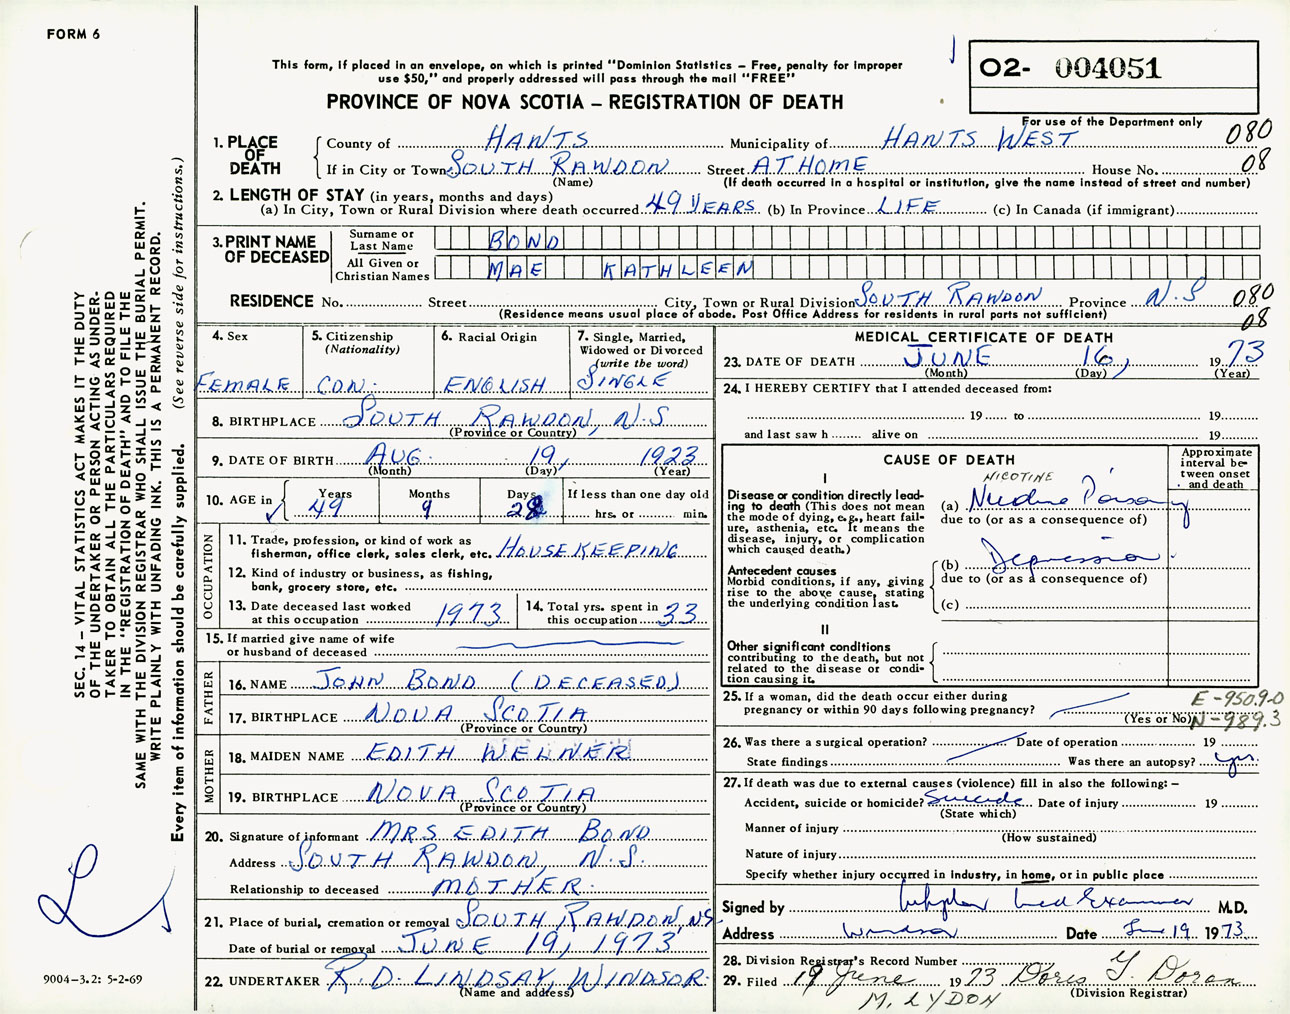 FORM 6
This form, if placed in an envelope, on which is printed "Dominion Statistics – Free, penalty for improper
use $50," and properly addressed will pass through the mail "FREE"
PROVINCE OF NOVA SCOTIA – REGISTRATION OF DEATH
O2- 004051
For use of the Department only
080
08
1. PLACE OF DEATH
County of HANTS Municipality of HANTS WEST
If in City or Town SOUTH RAWDON Street AT HOME House No.
(Name) (If death occurred in a hospital or institution, give the name instead of street and number)
2. LENGTH OF STAY (in years, months and days)
(a) In City, Town or Rural Division where death occurred 49 YEARS (b) In Province LIFE (c) In Canada (if immigrant)
3. PRINT NAME OF DECEASED
Surname or Last Name BOND
All Given or Christian Names MAE KATHLEEN
RESIDENCE No. Street City, Town or Rural Division SOUTH RAWDON Province N.S 080
(Residence means usual place of abode. Post Office Address for residents in rural parts not sufficient) 08
4. Sex
FEMALE
5. Citizenship
(Nationality)
CDN.
6. Racial Origin
ENGLISH
7. Single, Married,
Widowed or Divorced
(write the word)
SINGLE
8. BIRTHPLACE SOUTH RAWDON, N.S
(Province or Country)
9. DATE OF BIRTH AUG. 19, 1923
(Month) (Day) (Year)
10. AGE in
Years 49
Months 9
Days 28
If less than one day old
hrs. or min.
OCCUPATION
11. Trade, profession, or kind of work as
fisherman, office clerk, sales clerk, etc. HOUSEKEEPING
12. Kind of industry or business, as fishing,
bank, grocery store, etc.
13. Date deceased last worked
at this occupation 1973
14. Total yrs. spent in
this occupation 33
15. If married give name of wife
or husband of deceased
FATHER
16. NAME JOHN BOND (DECEASED)
17. BIRTHPLACE NOVA SCOTIA
(Province or Country)
MOTHER
18. MAIDEN NAME EDITH WELNER
19. BIRTHPLACE NOVA SCOTIA
(Province or Country)
20. Signature of informant MRS EDITH BOND
Address SOUTH RAWDON, N.S.
Relationship to deceased MOTHER.
21. Place of burial, cremation or removal SOUTH RAWDON, NS
Date of burial or removal JUNE 19, 1973
22. UNDERTAKER R.D. LINDSAY, WINDSOR.
(Name and address)
MEDICAL CERTIFICATE OF DEATH
23. DATE OF DEATH JUNE 16, 1973
(Month) (Day) (Year)
24. I HEREBY CERTIFY that I attended deceased from:
19 to 19
and last saw h alive on 19
CAUSE OF DEATH
Approximate interval between onset and death
I
Disease or condition directly leading to death (This does not
mean the mode of dying, e.g., heart failure, asthenia, etc. It means the
disease, injury, or complication
which caused death.)
NICOTINE
(a) Nicotine Poisoning
due to (or as a consequence of)
Antecedent causes
Morbid conditions, if any, giving
rise to the above cause, stating
the underlying condition last.
(b) Depression
due to (or as a consequence of)
(c)
II
Other significant conditions
contributing to the death, but not
related to the disease or condition causing it.
25. If a woman, did the death occur either during
pregnancy or within 90 days following pregnancy?
(Yes or No)
E-950.9-0
N-989.3
26. Was there a surgical operation? Date of operation 19
State findings Was there an autopsy? yes
27. If death was due to external causes (violence) fill in also the following: –
Accident, suicide or homicide? Suicide Date of injury 19
(State which)
Manner of injury
(How sustained)
Nature of injury
Specify whether injury occurred in industry, in home, or in public place
Signed by Med Examiner M.D.
Address Windsor Date June 19 1973
28. Division Registrar's Record Number
29. Filed 19 June 1973 Doris Y. Doran
(Division Registrar)
M. LYDON
SEC. 14 – VITAL STATISTICS ACT MAKES IT THE DUTY
OF THE UNDERTAKER OR PERSON ACTING AS UNDER-
TAKER TO OBTAIN ALL THE PARTICULARS REQUIRED
IN THE "REGISTRATION OF DEATH" AND TO FILE THE
SAME WITH THE DIVISION REGISTRAR WHO SHALL ISSUE THE BURIAL PERMIT.
WRITE PLAINLY WITH UNFADING INK. THIS IS A PERMANENT RECORD.
Every item of information should be carefully supplied. (See reverse side for instructions.)
9004–3.2: 5-2-69